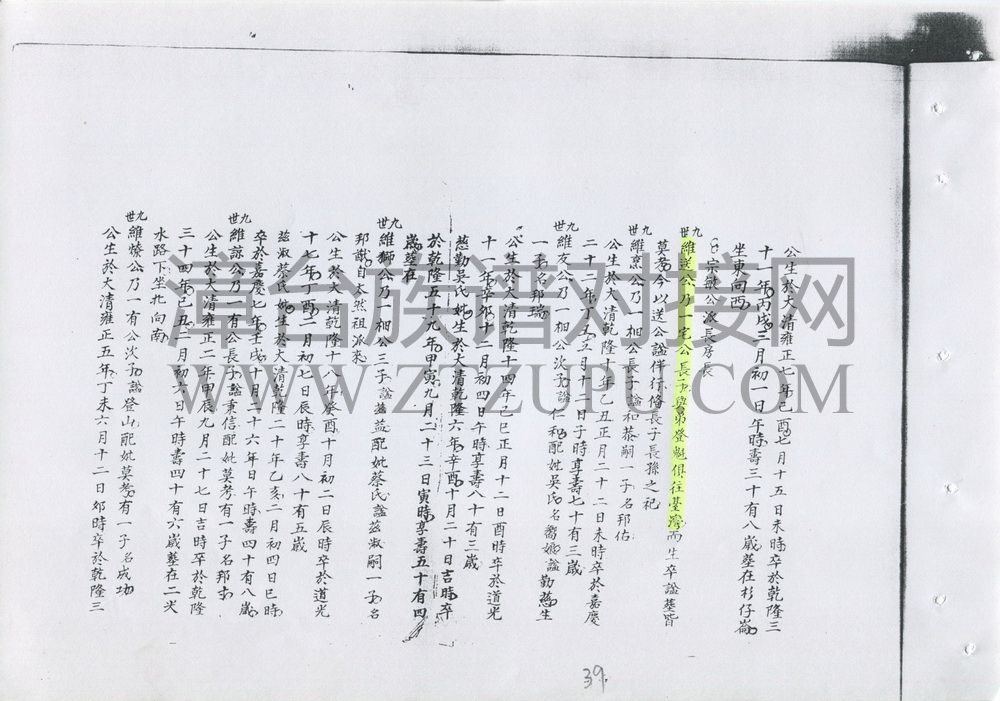 公生於大清雍正七年己酉七月十五日未時卒於乾隆三
十一年丙戌三月初一日午時壽三十有八歲墓在杉仔崙
坐東向西
公派長房長
九世維送公乃一宅公長子與弟登魁俱往臺灣而生卒諡墓皆
莫考今以送公諡伴行脩長子長孫之祀
九世維烹公乃一相公長子諡和恭嗣一子名邦佑
公生於大清乾隆十年乙丑正月二十二日未時卒於嘉慶
二十二年丁丑五月十二日子時享壽七十有三歲
九世維友公乃一相公次子諡仁和配妣吳氏名諡勤慈生
一子名邦瑞
公生於大清乾隆十四年己巳正月十二日酉時卒於道光
十一年辛卯十二月初四日午時享壽八十有三歲
慈勤吳氏妣生於大清乾隆六年辛酉十月二十日吉時卒
於乾隆五十九年甲寅九月二十三日寅時享壽五十有四
歲墓在
九世維獅公乃一相公三子諡益配妣蔡氏諡慈淑嗣一子名
邦猷自本然祖派來
公生於大清乾隆十八年癸酉十月初二日辰時卒於道光
十七年丁酉二月初七日辰時享壽八十有五歲
慈淑蔡氏妣生於大清乾隆二十年乙亥二月初四日巳時
卒於嘉慶七年壬戌十月二十六年日午時壽四十有八歲
九世維諒公乃一有公長子諡秉信配妣莫考有一子名邦
公生於大清雍正二年甲辰九月二十七日吉時卒於乾隆
三十四年己丑二月初六日午時壽四十有六歲墓在二
水路下坐北向南
九世維公乃一有公次子諡登山配妣莫考有一子名成功
公生於大清雍正五年丁未六月十二日卯時卒於乾隆三
39.
漳台族譜对接网
WWW.ZTZUPU.COM